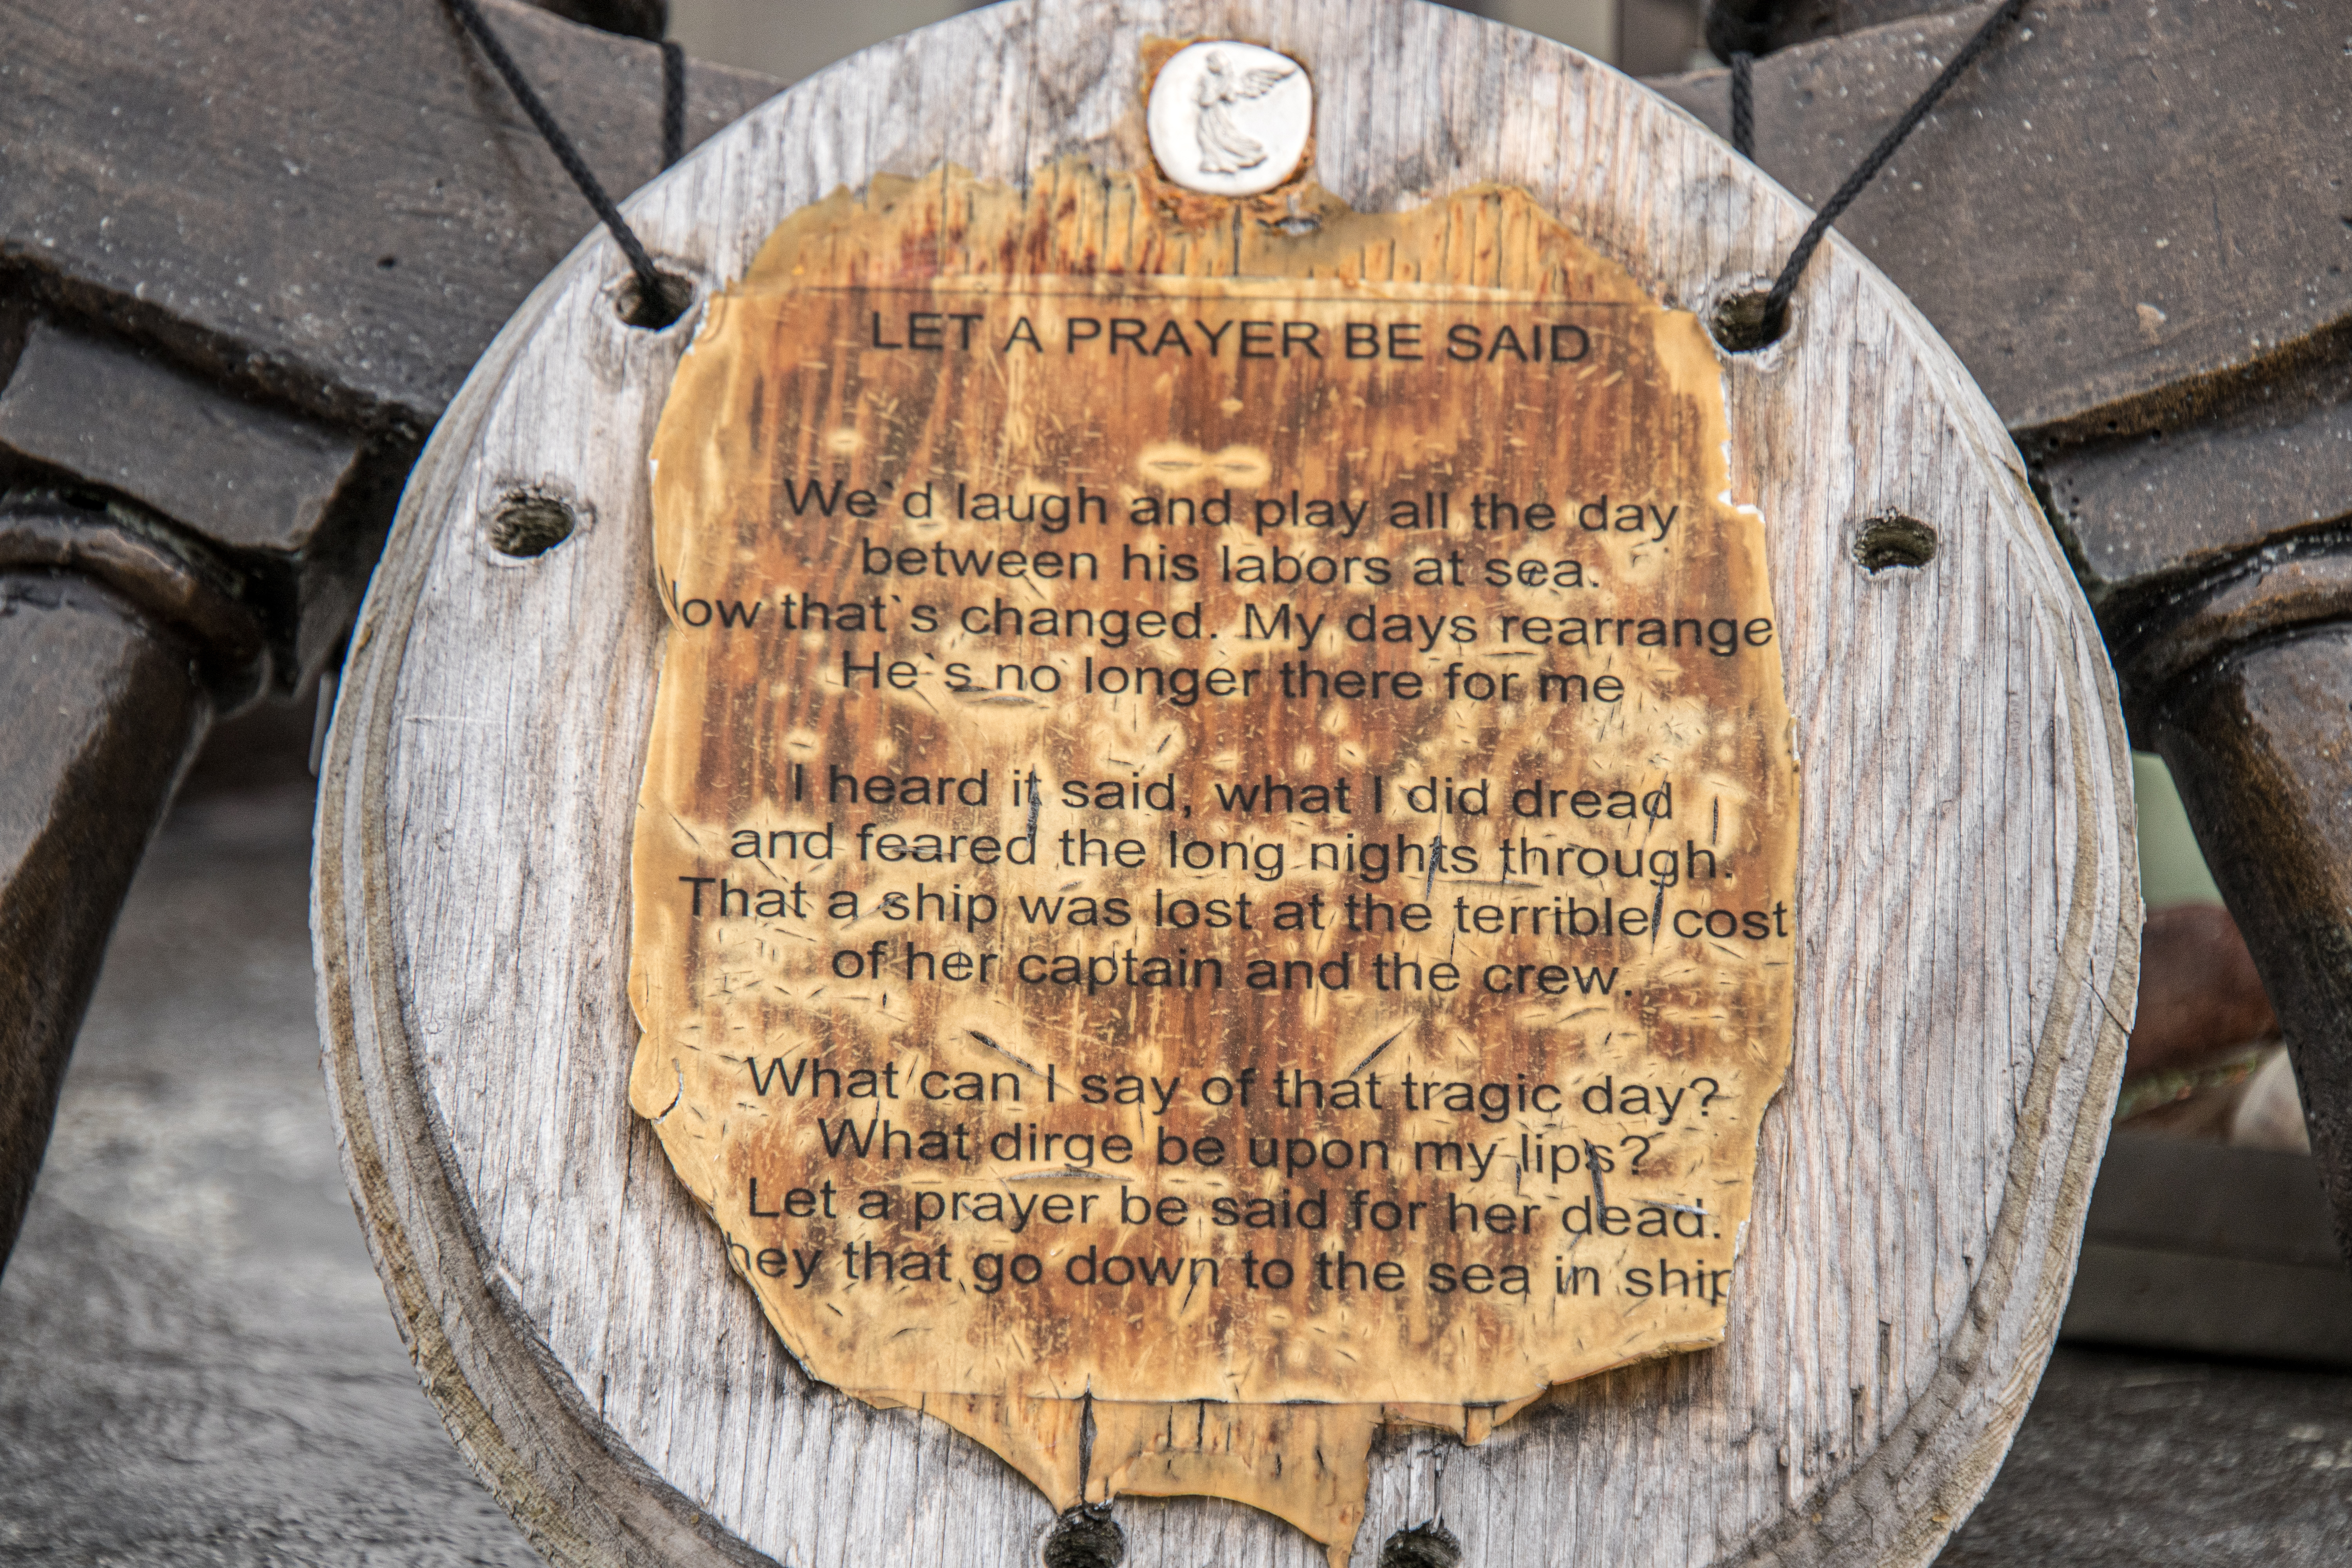 LET A PRAYER BE SAID
We`d laugh and play all the day
between his labors at sea.
ow that`s changed. My days rearrange
He`s no longer there for me
I heard it said, what I did dread
and feared the long nights through.
That a ship was lost at the terrible cost
of her captain and the crew.
What can I say of that tragic day?
What dirge be upon my lips?
Let a prayer be said for her dead.
hey that go down to the sea in ship